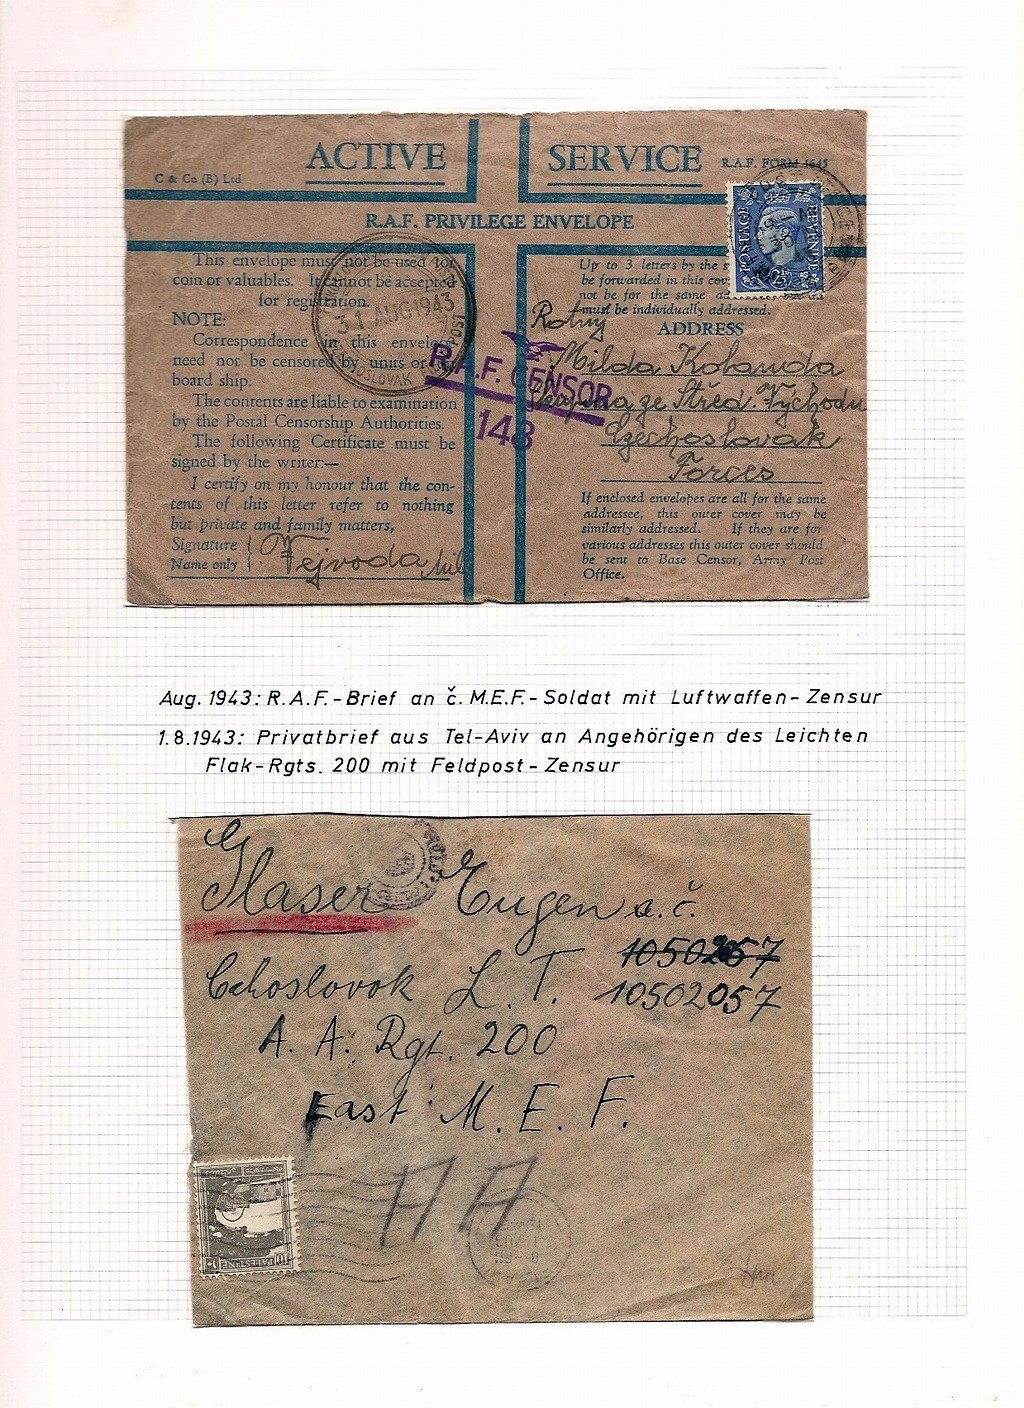 ACTIVE SERVICE
R.A.F. FORM 1645
C & Co (B) Ltd
R.A.F. PRIVILEGE ENVELOPE
This envelope must not be used for
coin or valuables. It cannot be accepted
for registration.
NOTE:
Correspondence in this envelope
need not be censored by units or on
board ship.
The contents are liable to examination
by the Postal Censorship Authorities.
The following Certificate must be
signed by the writer:—
I certify on my honour that the con-
tents of this letter refer to nothing
but private and family matters,
Signature
Name only
Vejvoda
31 AUG 1943
POST
R.A.F. CENSOR
148
POSTAGE
REVENUE
Up to 3 letters by the
be forwarded in this
not be for the same
must be individually addressed.
ADDRESS
Rotný
Milda Kohanda
ze Střed. Východu
Czechoslovak
Forces
If enclosed envelopes are all for the same
addressee, this outer cover may be
similarly addressed. If they are for
various addresses this outer cover should
be sent to Base Censor, Army Post
Office.
Aug. 1943: R.A.F.-Brief an č. M.E.F.-Soldat mit Luftwaffen-Zensur
1.8.1943: Privatbrief aus Tel-Aviv an Angehörigen des Leichten
Flak-Rgts. 200 mit Feldpost-Zensur
Glaser Eugen a.č.
10502057
Cchoslovok L. T. 10502057
A. A. Rgt. 200
East M. E. F.
PALESTINE